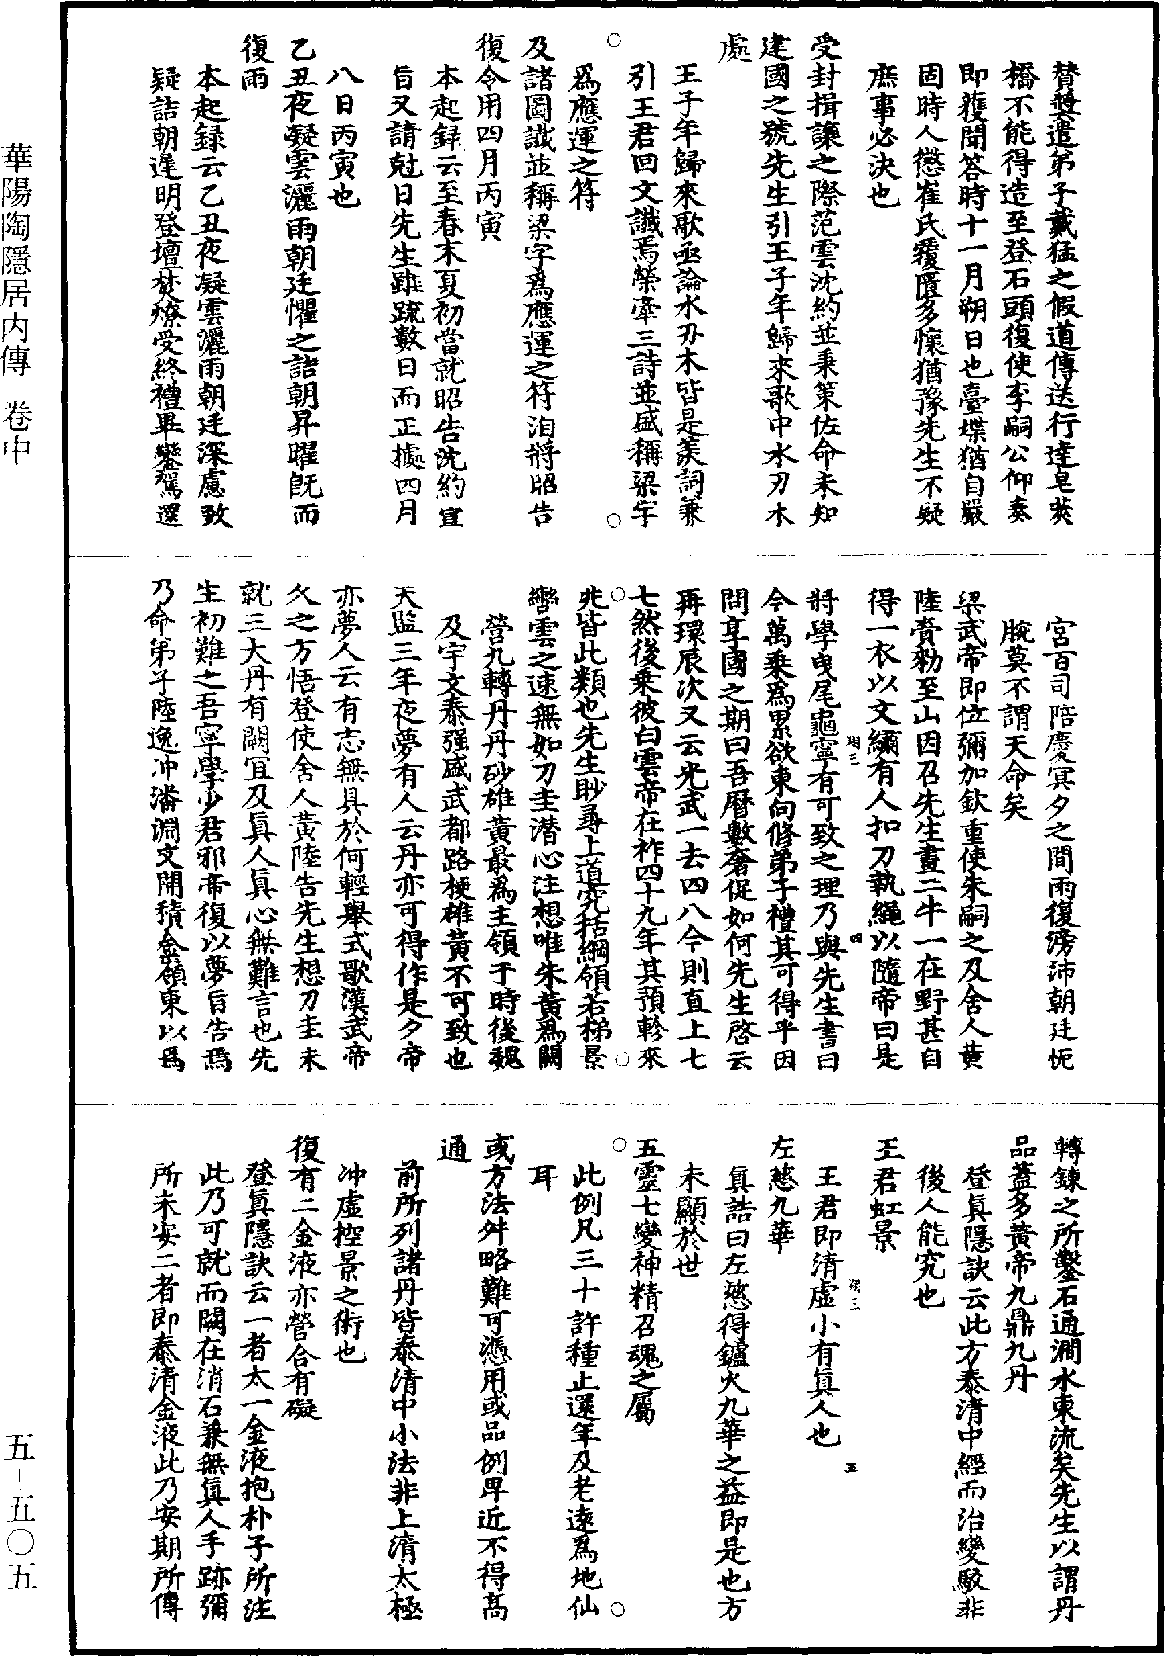 贊奬遣弟子戴猛之假道傳送行達皂莢
橋不能得造至登石頭復使李嗣公仰奏
即獲聞答時十一月朔日也臺堞猶自嚴
固時人懲崔氏覆匱多懷猶豫先生不疑
庶事必決也
受封揖讓之際范雲沈約並秉策佐命未知
建國之號先生引王子年歸來歌中水刃木
處
王子年歸來歌亟論水刃木皆是美詞兼
引王君回文讖焉榮牽三詩並盛稱梁字
爲應運之符
及諸圖讖並稱梁字爲應運之符洎將昭告
復令用四月丙寅
本起録云至春末夏初當就昭告沈約宣
旨又請尅日先生雖疏數日而正擬四月
八日丙寅也
乙丑夜凝雲灑雨朝廷懼之詰朝昇曜旣而
復雨
本起録云乙丑夜凝雲灑雨朝廷深慮致
疑詰朝逢明登壇焚燎受終禮畢鑾駕還
宮百司陪慶冥夕之間雨復滂沛朝廷怩
腕莫不謂天命矣
梁武帝即位彌加欽重使朱嗣之及舍人黄
陸賫勑至山因召先生畫二牛一在野甚自
得一衣以文繡有人扣刀執繩以隨帝曰是
將學曳尾龜寧有可致之理乃與先生書曰
今萬乘爲累欲東向修弟子禮其可得乎因
問享國之期曰吾曆數奢促如何先生啓云
再環辰次又云光武一去四八今則直上七
七然後乘彼白雲帝在祚四十九年其預軫來
兆皆此類也先生眇尋上道究括綱領若梯景
轡雲之速無如刀圭潜心注想唯朱黄爲關
營九轉丹丹砂雄黄最為主領于時後魏
及宇文泰强盛武都路梗雄黄不可致也
天監三年夜夢有人云丹亦可得作是夕帝
亦夢人云有志無具於何輕舉式歌漢武帝
久之方悟登使舍人黄陸告先生想刀圭未
就三大丹有闕宜及眞人眞心無難言也先
生初難之吾寧學少君邪帝復以夢旨告焉
乃命弟子陸逸冲潘淵文開積金嶺東以爲
轉錬之所鑿石通澗水東流矣先生以謂丹
品蓋多黄帝九鼎九丹
登眞隱訣云此方泰清中經而治變駮非
後人能究也
王君虹景
王君即清虛小有眞人也
左慈九華
眞誥曰左慈得鑪火九華之益即是也方
未顯於世
五靈七變神精召魂之屬
此例凡三十許種止還年及老遠爲地仙
耳
或方法舛略難可憑用或品例卑近不得高
通
前所列諸丹皆泰清中小法非上清太極
冲虛控景之術也
復有二金液亦營合有礙
登眞隱訣云一者太一金液抱朴子所注
此乃可就而闕在消石兼無眞人手跡彌
所未安二者即泰清金液此乃安期所傳
華陽陶隱居内傳　卷中
五－五〇五